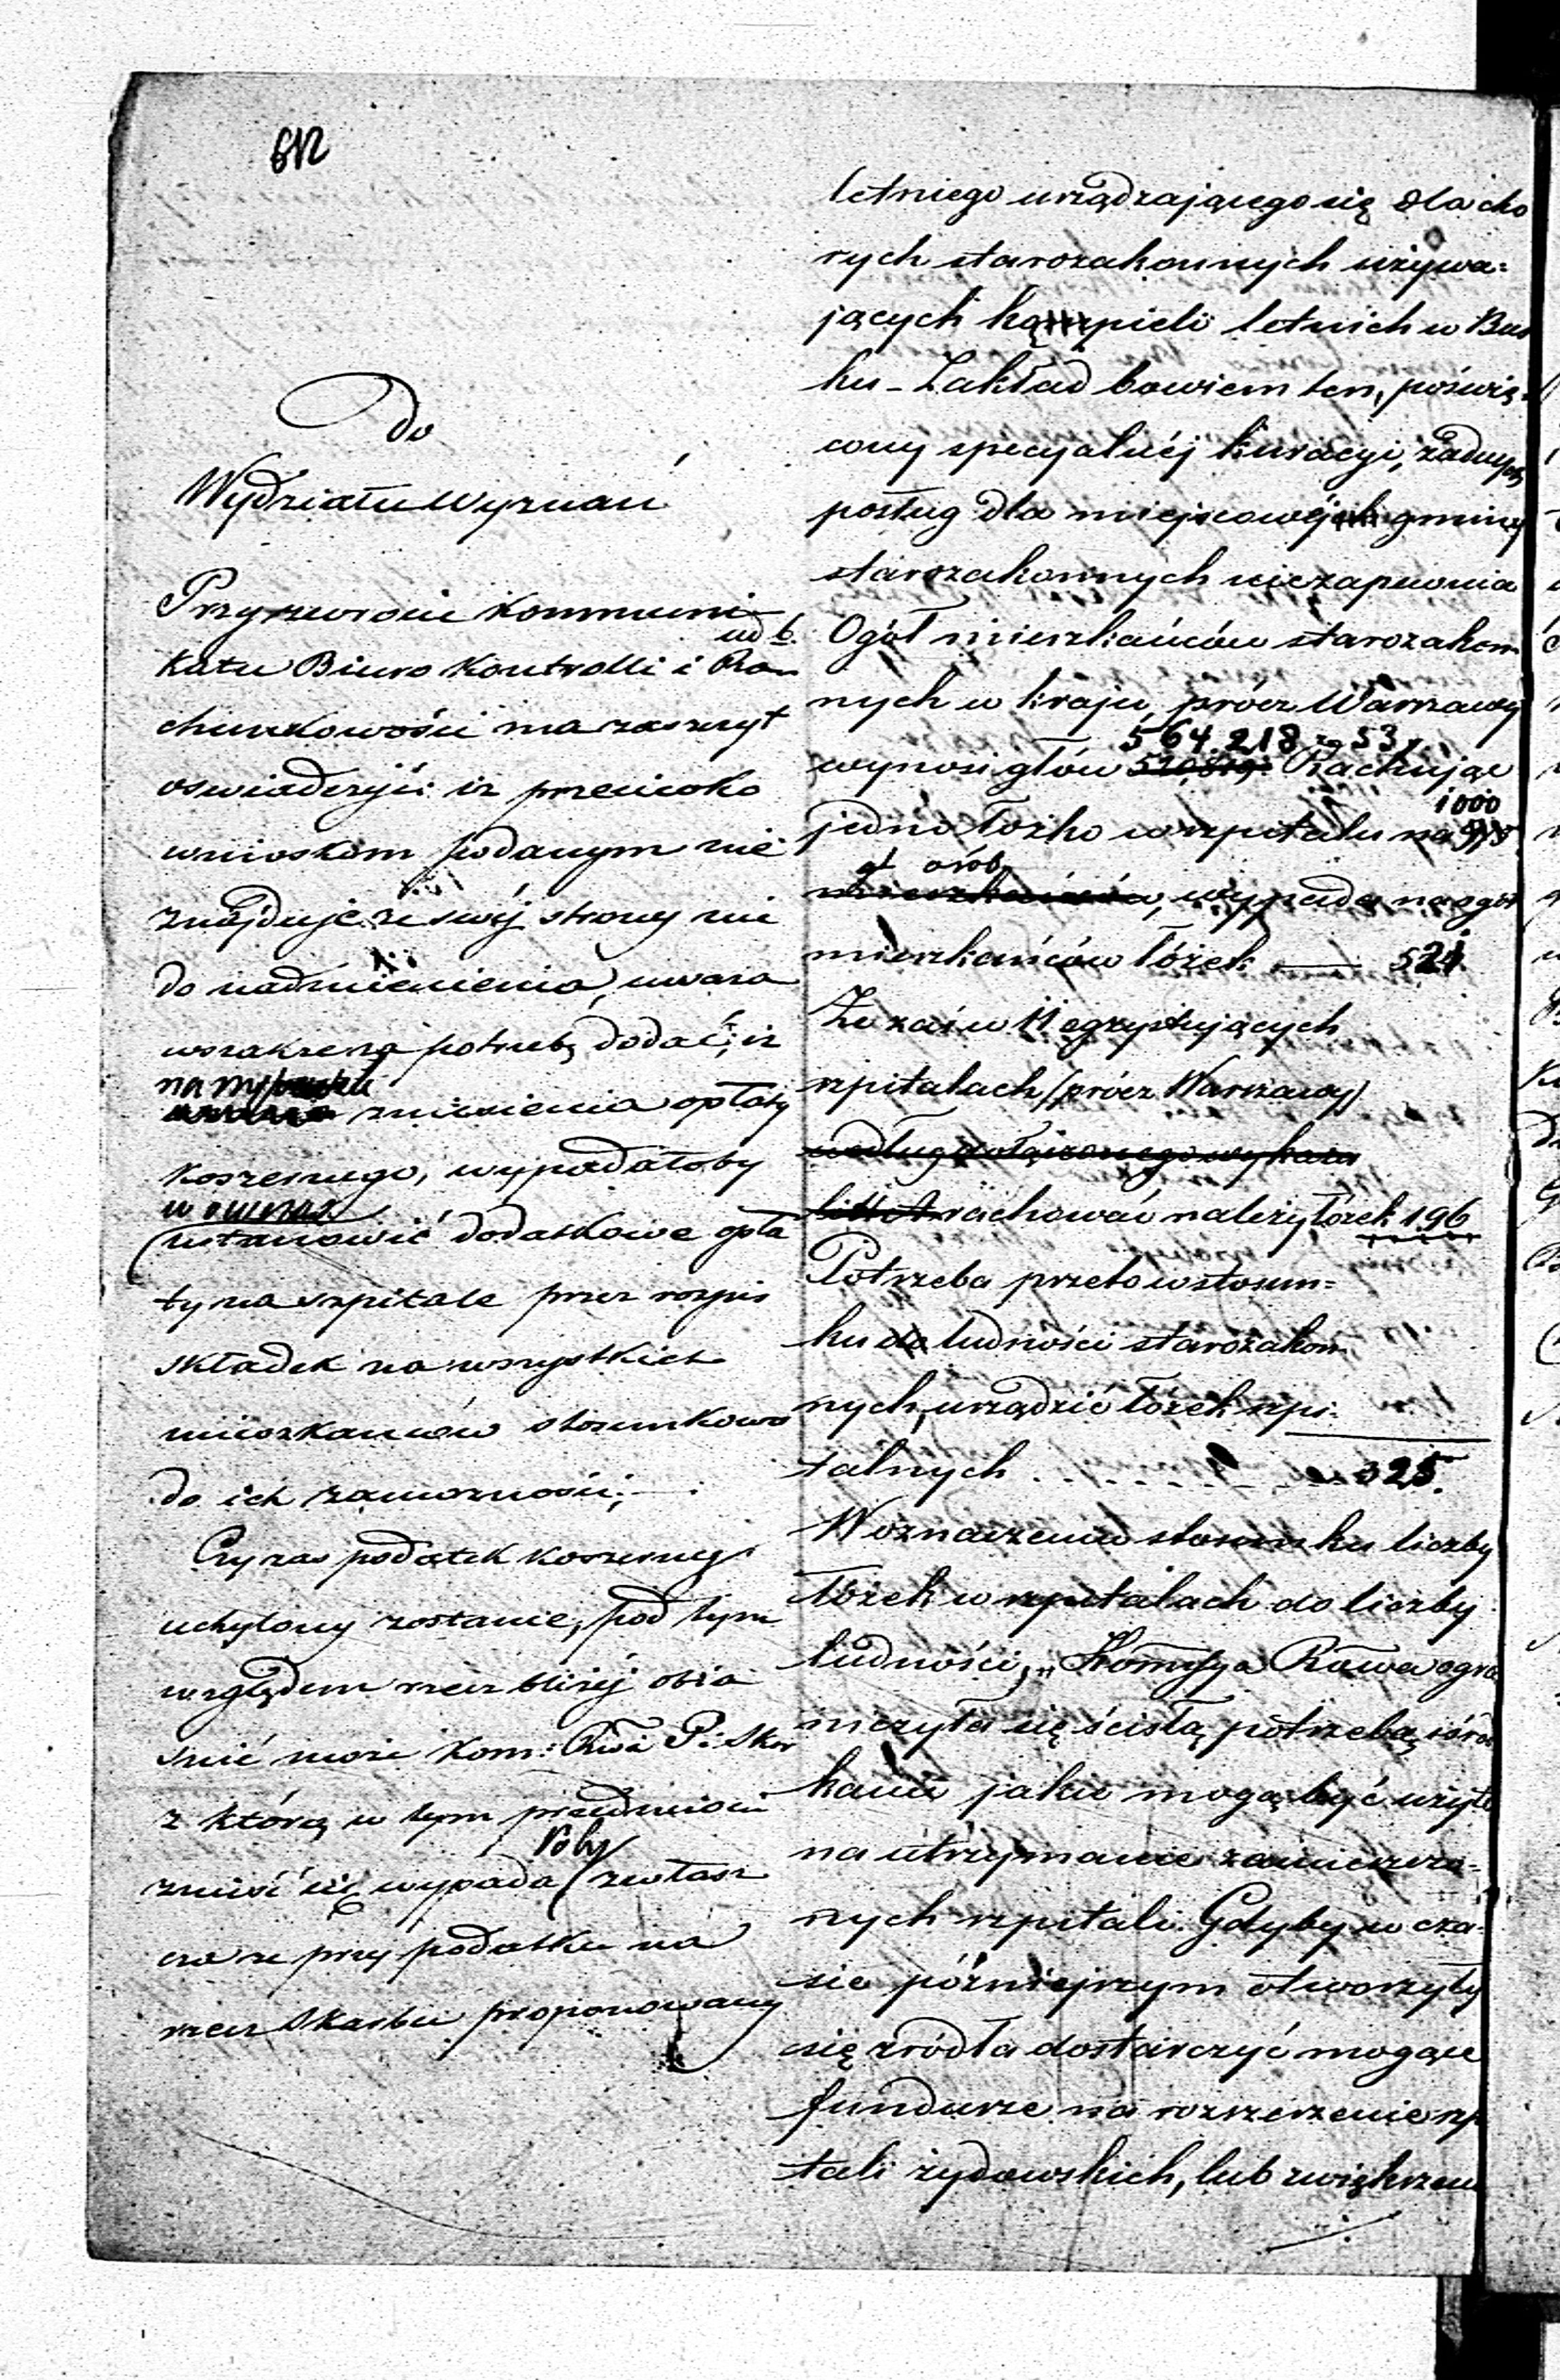 612
Do
Wydziału Wyznań
Przy zwrocie Kommuni
ud b.
katu Biura Kontrolli i Ra
chunkowości ma zaszczyt
oswiadczyć: iz przeciwko
wnioskom podanym nie
znajduje ze swéj strony nic
do nadmienienia, uwaza
wszakze za potrzebę dodać, iz
na wypadek
zniesienia opłaty
koszernego, wypadałoby
wówczas
ustanowić dodatkowe opła
ty na szpitale przez rozpis
składek na wszystkich
mieszkancow stosunkowo
do ich zamoznosci;
Czy zas podatek koszerneg
uchylony zostanie, pod tym
względem rzecz bliżéj obia
snić może Kom: Rwa P: i Skar
z którą w tym przedmiocie
by
znieść się wypada zwłasz
cza ze przy podatku na
rzecz Skarbu proponowany
letniego urządzającego się dla cho
rych starozakonnych używa=
jących kąpieli letnich w Bus
ku - Zakład bowiem ten, poświę=
cony specyalnéj kuracyi, żadnych
posług dla miejscowéj gminy
starozakonnych niezapewnia
Ogół mieszkańców starozakon
nych w kraju, prócz Warszawy
564.218
wynosi głów Rachując
1000
jedno łóżko w szpitalu na
osób
mieszkańców, wypada na ogół
mieszkańców łóżek — 521
Ze zaś w 11 egzystujących
szpitalach (prócz Warszawy)
według dołączonego wykazu
litt A rachować należy łóżek 196
Potrzeba przeto w stosun=
ku do ludności starozakon
nych, urządzić łóżek szpi=
talnych . . . . . . . 325.
W oznaczeniu stosunku liczby
łóżek w szpitalach do liczby
ludności, Kommsya Rzowa ogra
niczyła się ścisłą potrzebą i środ
kami jakie mogą być użyte
na utrzymanie zamierzo=
nych szpitali. Gdyby w cza=
sie późniejszym otworzyły
się źródła dostarczyć mogące
fundusze na rozszerzenie szp
tali żydowskich, lub zwiększen